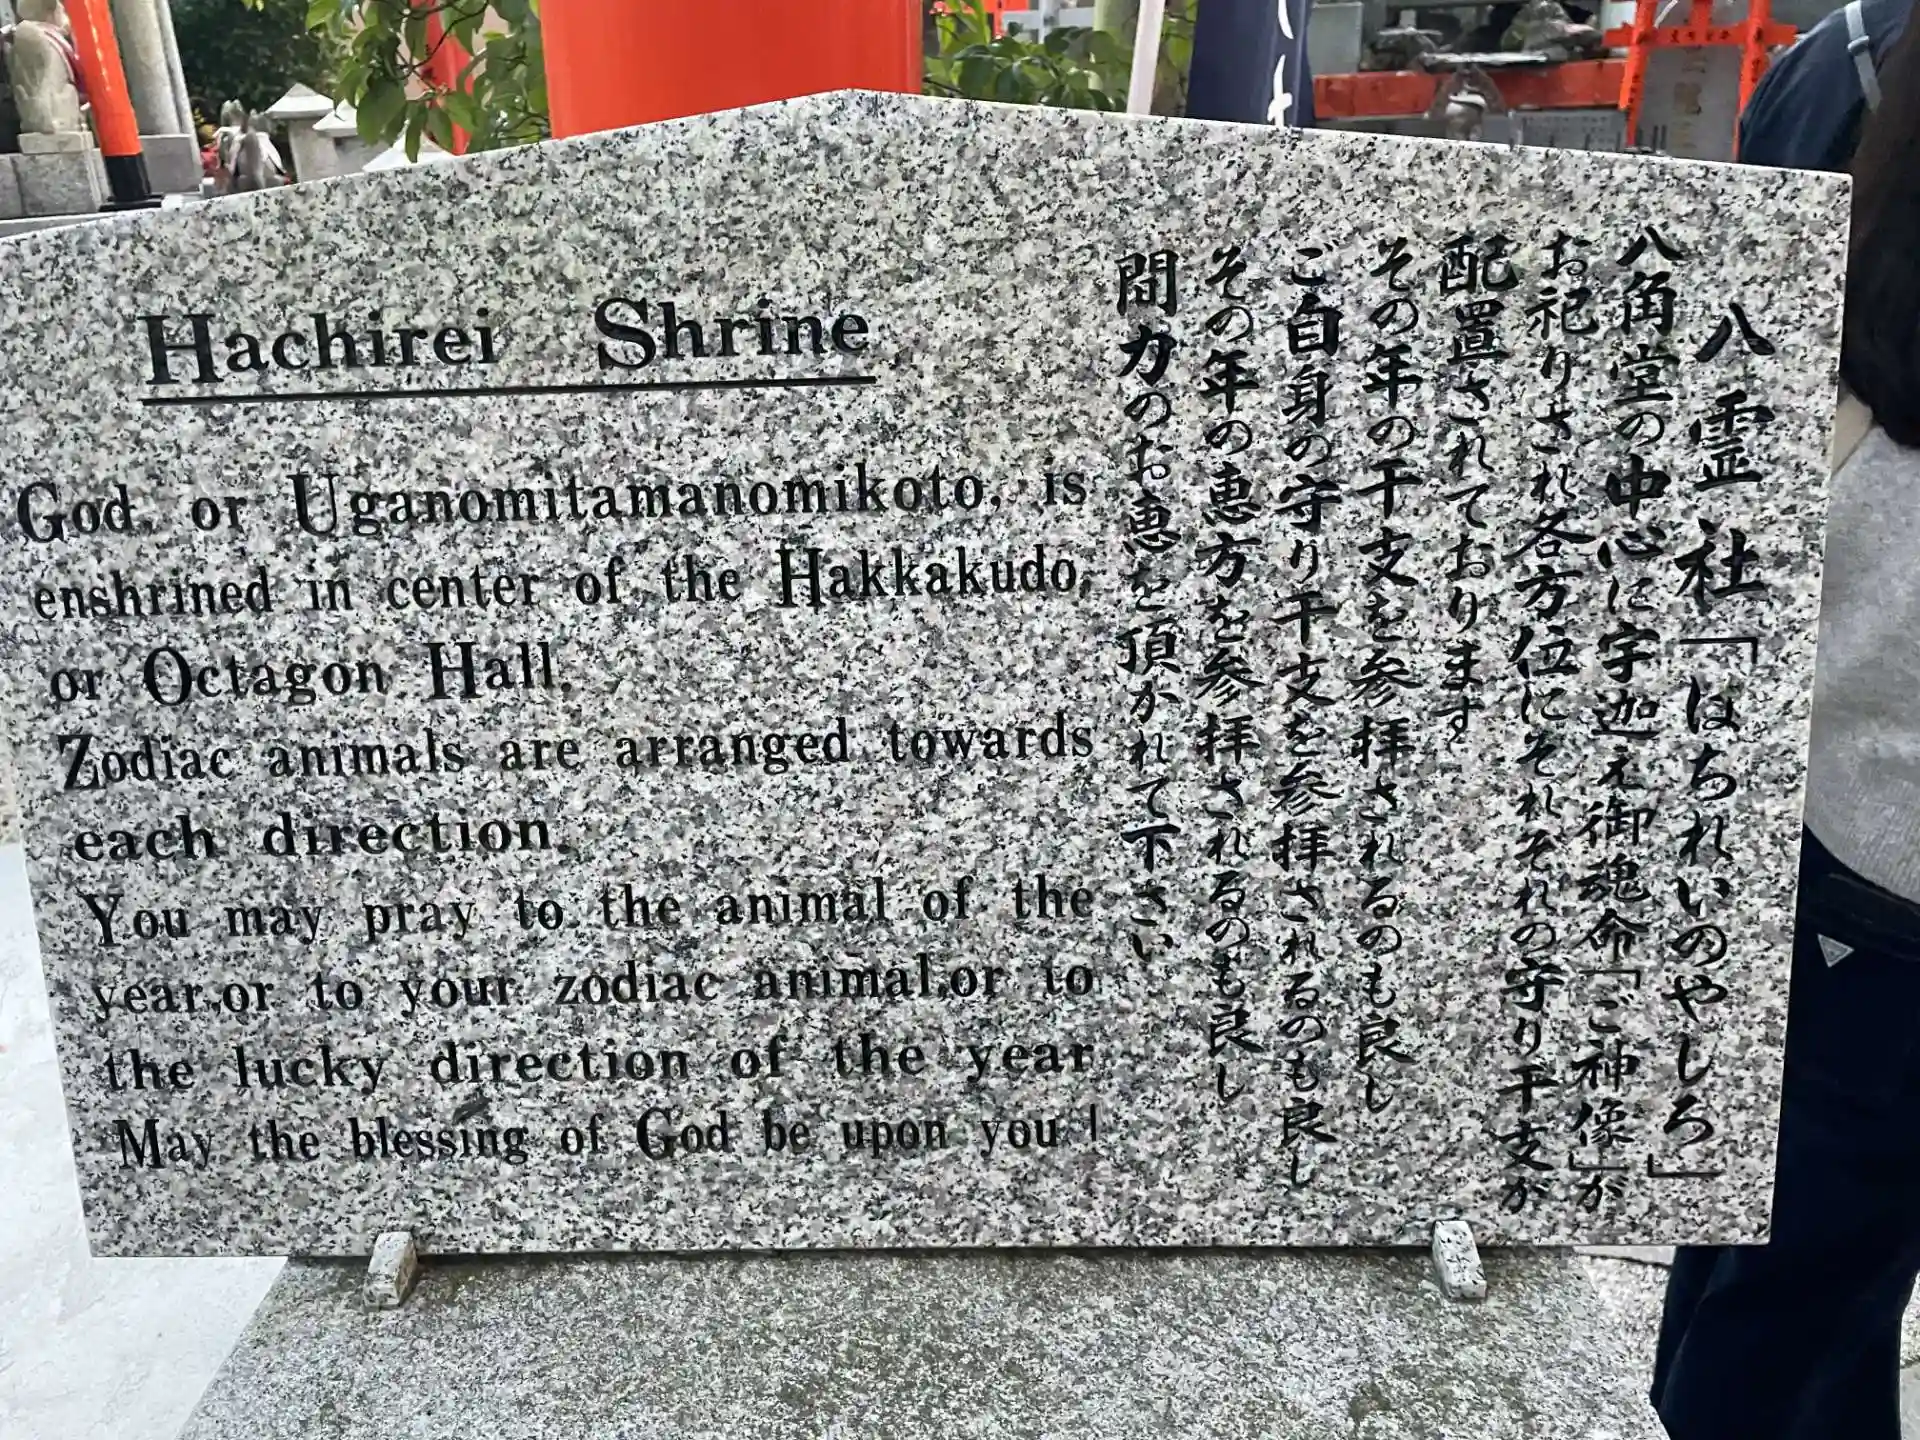 Hachirei Shrine
God, or Uganomitamanomikoto, is
enshrined in center of the Hakkakudo,
or Octagon Hall.
Zodiac animals are arranged towards
each direction.
You may pray to the animal of the
year,or to your zodiac animal,or to
the lucky direction of the year
May the blessing of God be upon you!
八霊社「はちれいのやしろ」
八角堂の中心に宇迦之御魂命「ご神像」が
お祀りされ各方位にそれぞれの守り干支が
配置されております
その年の干支を参拝されるのも良し
ご自身の守り干支を参拝されるのも良し
その年の恵方を参拝されるのも良し
間力のお恵を頂かれて下さい